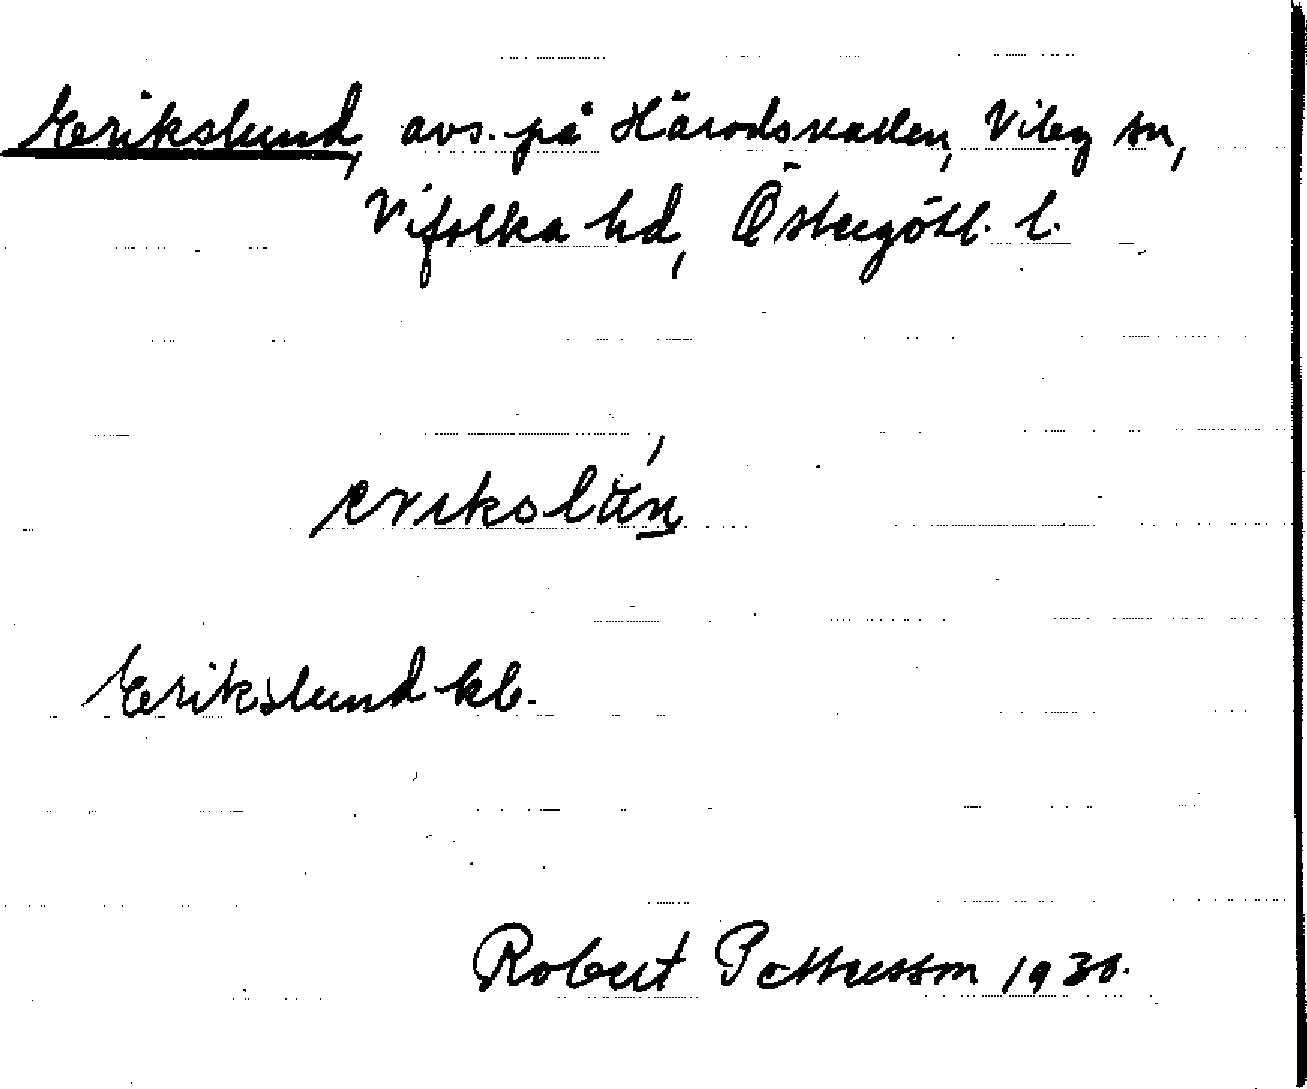 Erikslund, avs. på Härodsvallen, Viby sn,
Vifolka hd, Östergötl. l.
Erikslund kb.
Robert Pettersson 1930.